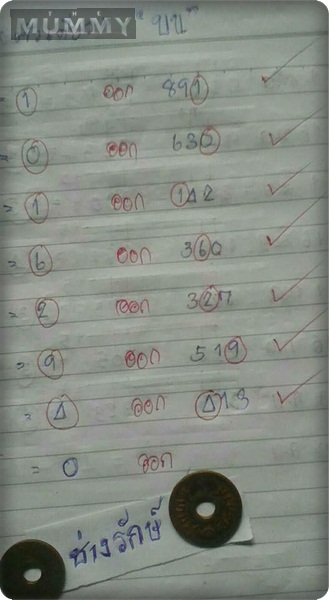 THE
MUMMY
"บน"
= 1 ออก 891 ✓
= 0 ออก 630 ✓
= 1 ออก 142 ✓
= 6 ออก 360 ✓
= 2 ออก 327 ✓
= 9 ออก 519 ✓
= 4 ออก 413 ✓
= 0 ออก
ช่างรักษ์